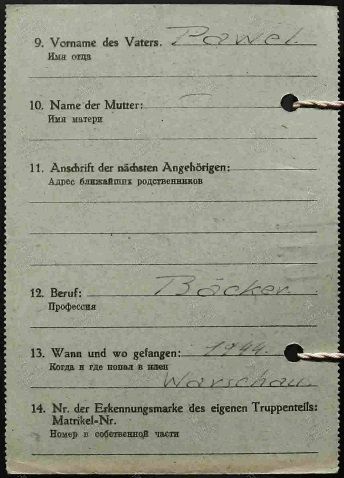 9. Vorname des Vaters. Pawel.
Имя отца
10. Name der Mutter: —
Имя матери
11. Anschrift der nächsten Angehörigen:
Адрес ближайших родственников
12. Beruf: Bäcker
Профессия
13. Wann und wo gefangen: 1944.
Когда и где попал в плен
Warschau.
14. Nr. der Erkennungsmarke des eigenen Truppenteils:
Matrikel-Nr.
Номер в собственной части